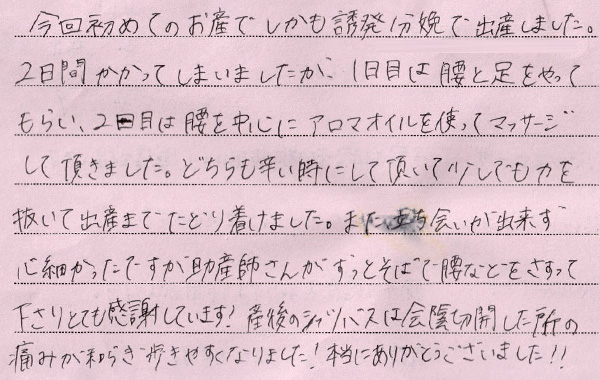 今回初めてのお産でしかも誘発分娩で出産しました。
2日間かかってしまいましたが、1日目は腰と足をやって
もらい、2日目は腰を中心にアロマオイルを使ってマッサージ
して頂きました。どちらも辛い時にして頂いて少しでも力を
抜いて出産までたどり着けました。また立ち会いが出来ず
心細かったですが助産師さんがずっとそばで腰などをさすって
下さりとても感謝しています!産後のシッツバスは会陰切開した所の
痛みが和らぎ歩きやすくなりました!本当にありがとうございました!!